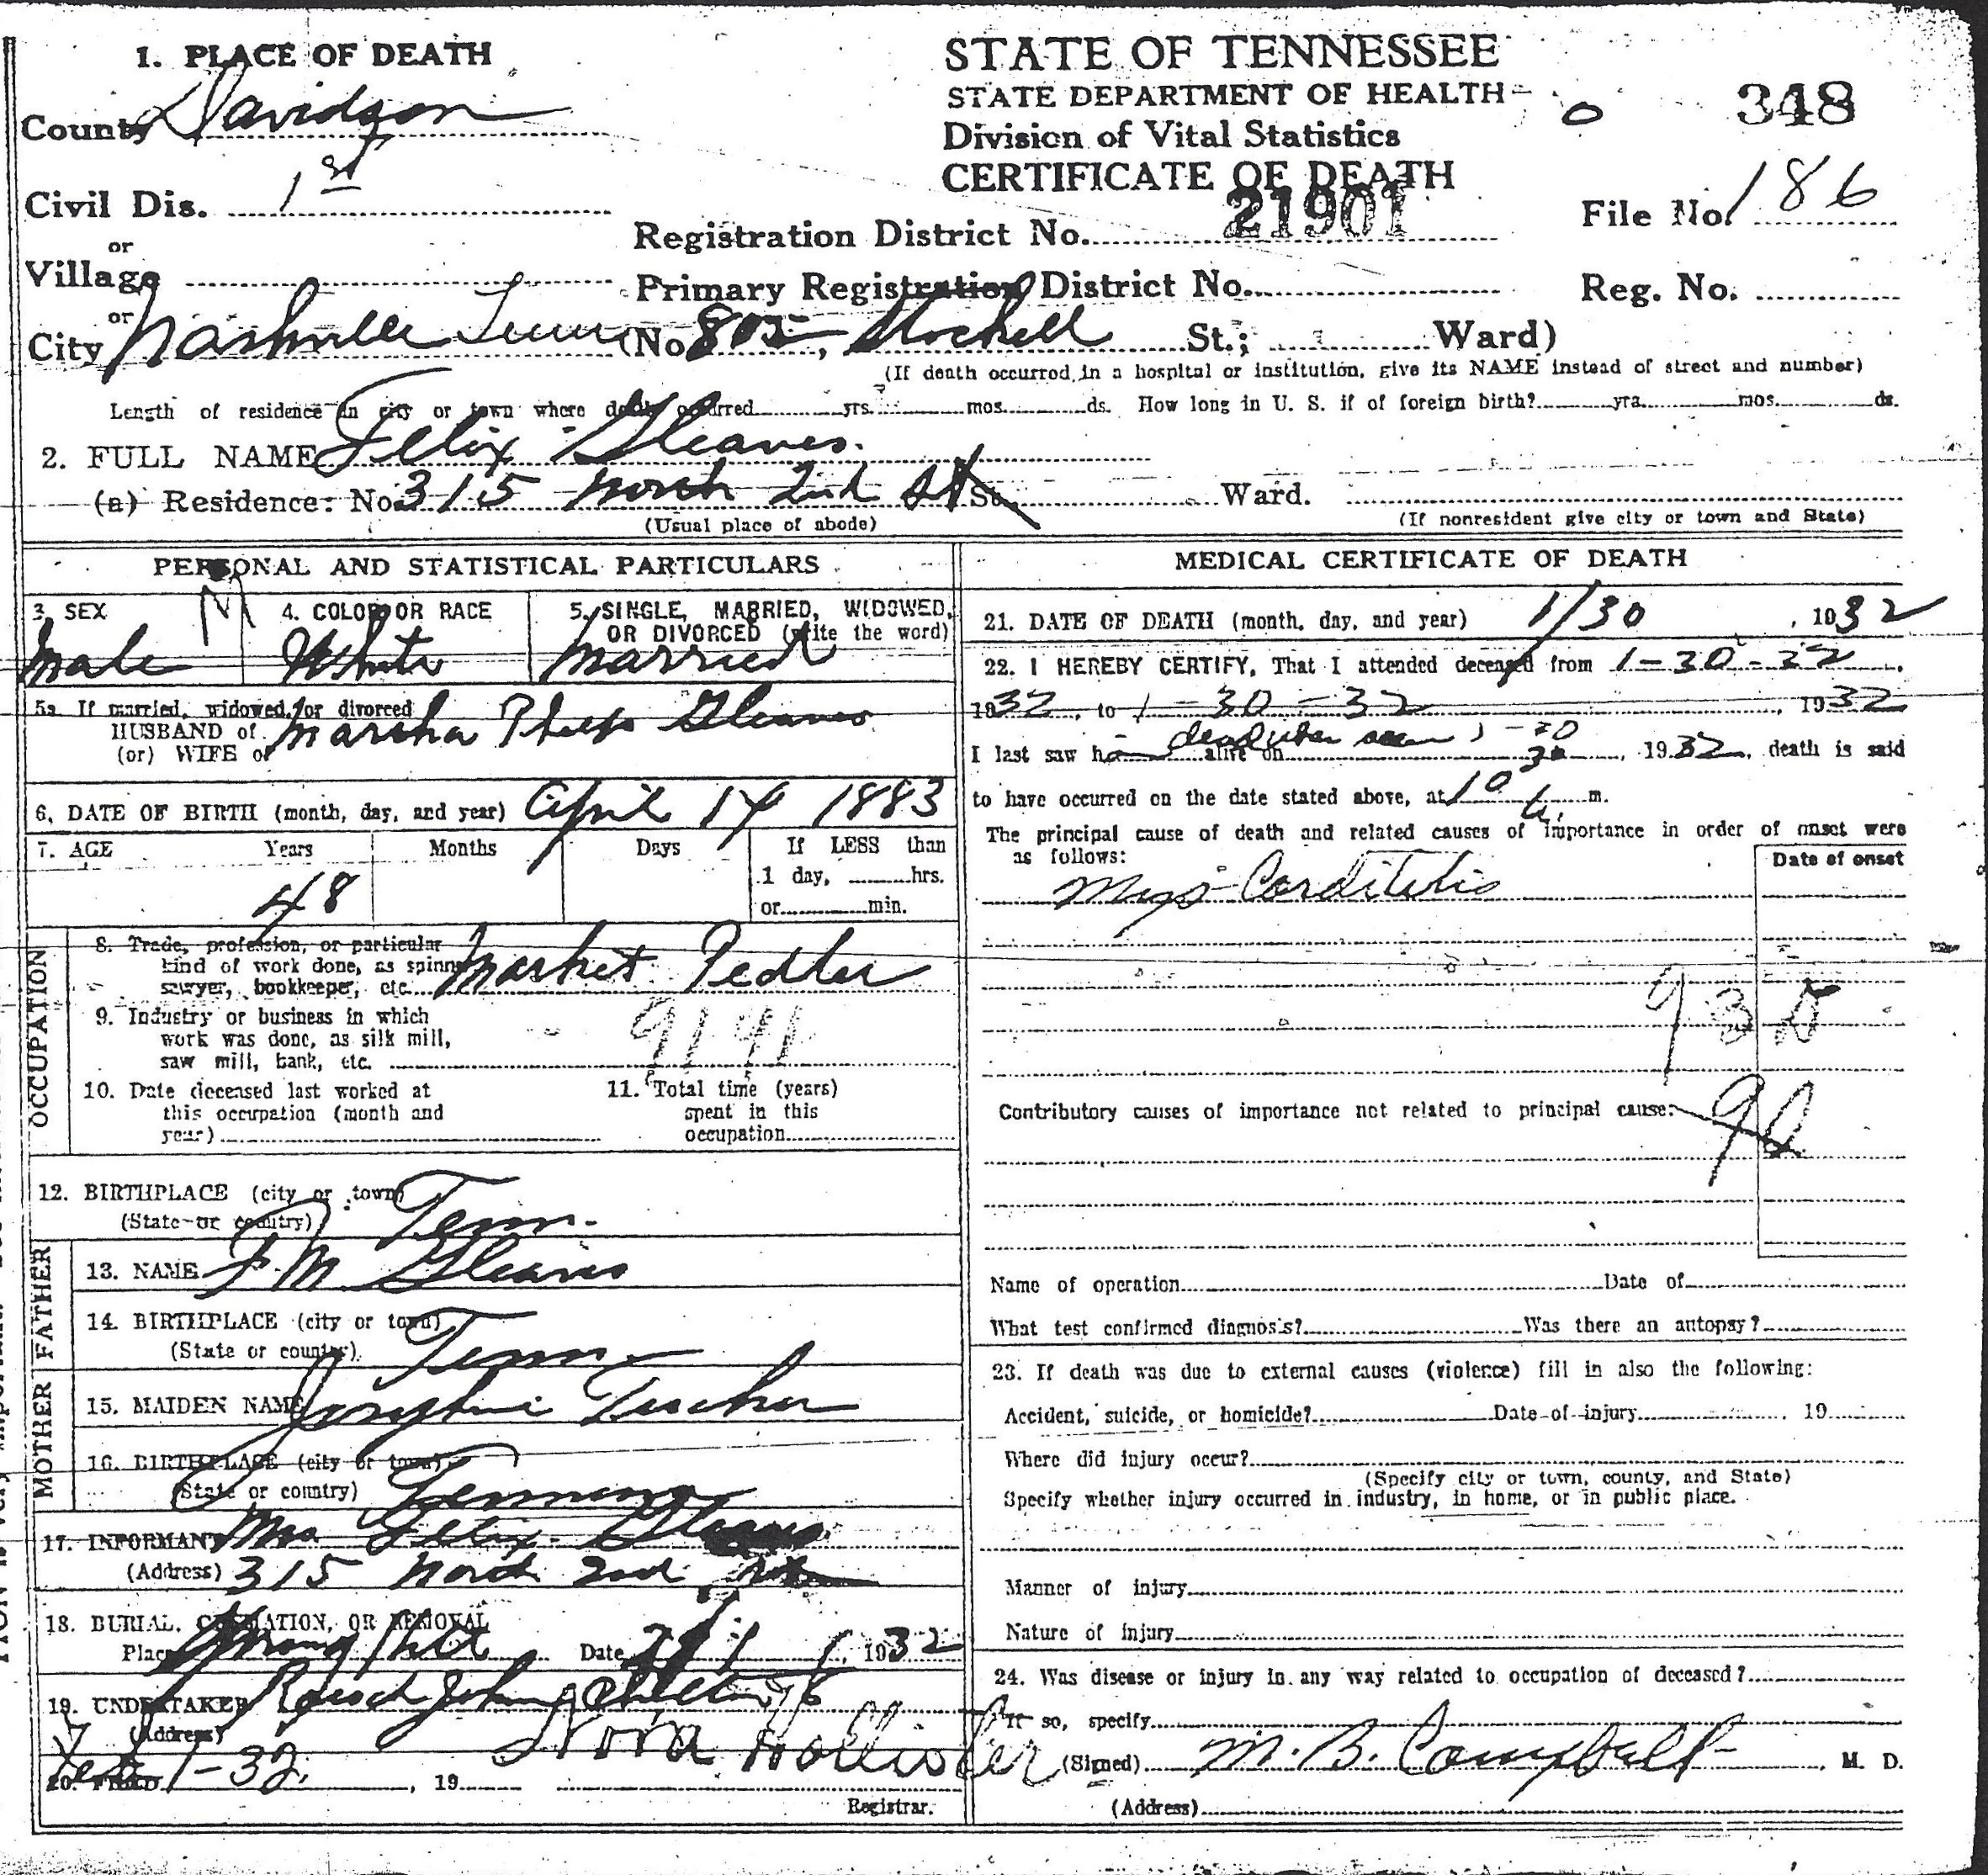 1. PLACE OF DEATH
County Davidson
Civil Dis. 1st
or
Village
or
City Nashville Tenn (No. 805, Stockell St.; Ward)
STATE OF TENNESSEE
STATE DEPARTMENT OF HEALTH
Division of Vital Statistics
CERTIFICATE OF DEATH
348
Registration District No. 21901
File No. 186
Primary Registration District No.
Reg. No.
(If death occurred in a hospital or institution, give its NAME instead of street and number)
Length of residence in city or town where death occurred yrs. mos. ds. How long in U. S. if of foreign birth? yrs. mos. ds.
2. FULL NAME Felix Gleaves.
(a) Residence: No. 315 North 2nd St St. Ward.
(Usual place of abode) (If nonresident give city or town and State)
PERSONAL AND STATISTICAL PARTICULARS
3. SEX M
Male
4. COLOR OR RACE
White
5. SINGLE, MARRIED, WIDOWED,
OR DIVORCED (write the word)
Married
5a. If married, widowed, or divorced
HUSBAND of
(or) WIFE of
Marsha Phelps Gleaves
6. DATE OF BIRTH (month, day, and year) April 14 1883
7. AGE Years Months Days If LESS than
1 day, hrs.
or min.
48
OCCUPATION
8. Trade, profession, or particular
kind of work done, as spinner,
sawyer, bookkeeper, etc. Market Pedler
9. Industry or business in which
work was done, as silk mill,
saw mill, bank, etc.
9191
10. Date deceased last worked at
this occupation (month and
year)
11. Total time (years)
spent in this
occupation
12. BIRTHPLACE (city or town)
(State or country) Tenn.
FATHER
13. NAME F M Gleaves
14. BIRTHPLACE (city or town)
(State or country) Tenn.
MOTHER
15. MAIDEN NAME Josephine Tucker
16. BIRTHPLACE (city or town)
(State or country)
17. INFORMANT Mrs Felix Gleaves
(Address) 315 North 2nd St
18. BURIAL, CREMATION, OR REMOVAL
Place Spring Hill Date 2/1, 1932
19. UNDERTAKER
(Address)
20. FILED Feb 1-32, 19
Nora Hollister
Registrar.
MEDICAL CERTIFICATE OF DEATH
21. DATE OF DEATH (month, day, and year) 1/30, 1932
22. I HEREBY CERTIFY, That I attended deceased from 1-30-32,
1932, to 1-30-32, 1932
I last saw h alive on dead when seen 1-30 30, 1932, death is said
to have occurred on the date stated above, at 10 m.
The principal cause of death and related causes of importance in order of onset were
as follows:
Date of onset
Myo Cardititis
Contributory causes of importance not related to principal cause:
Name of operation Date of
What test confirmed diagnosis? Was there an autopsy?
23. If death was due to external causes (violence) fill in also the following:
Accident, suicide, or homicide? Date of injury , 19
Where did injury occur?
(Specify city or town, county, and State)
Specify whether injury occurred in industry, in home, or in public place.
Manner of injury
Nature of injury
24. Was disease or injury in any way related to occupation of deceased?
If so, specify
(Signed) M. B. Campbell, M. D.
(Address)